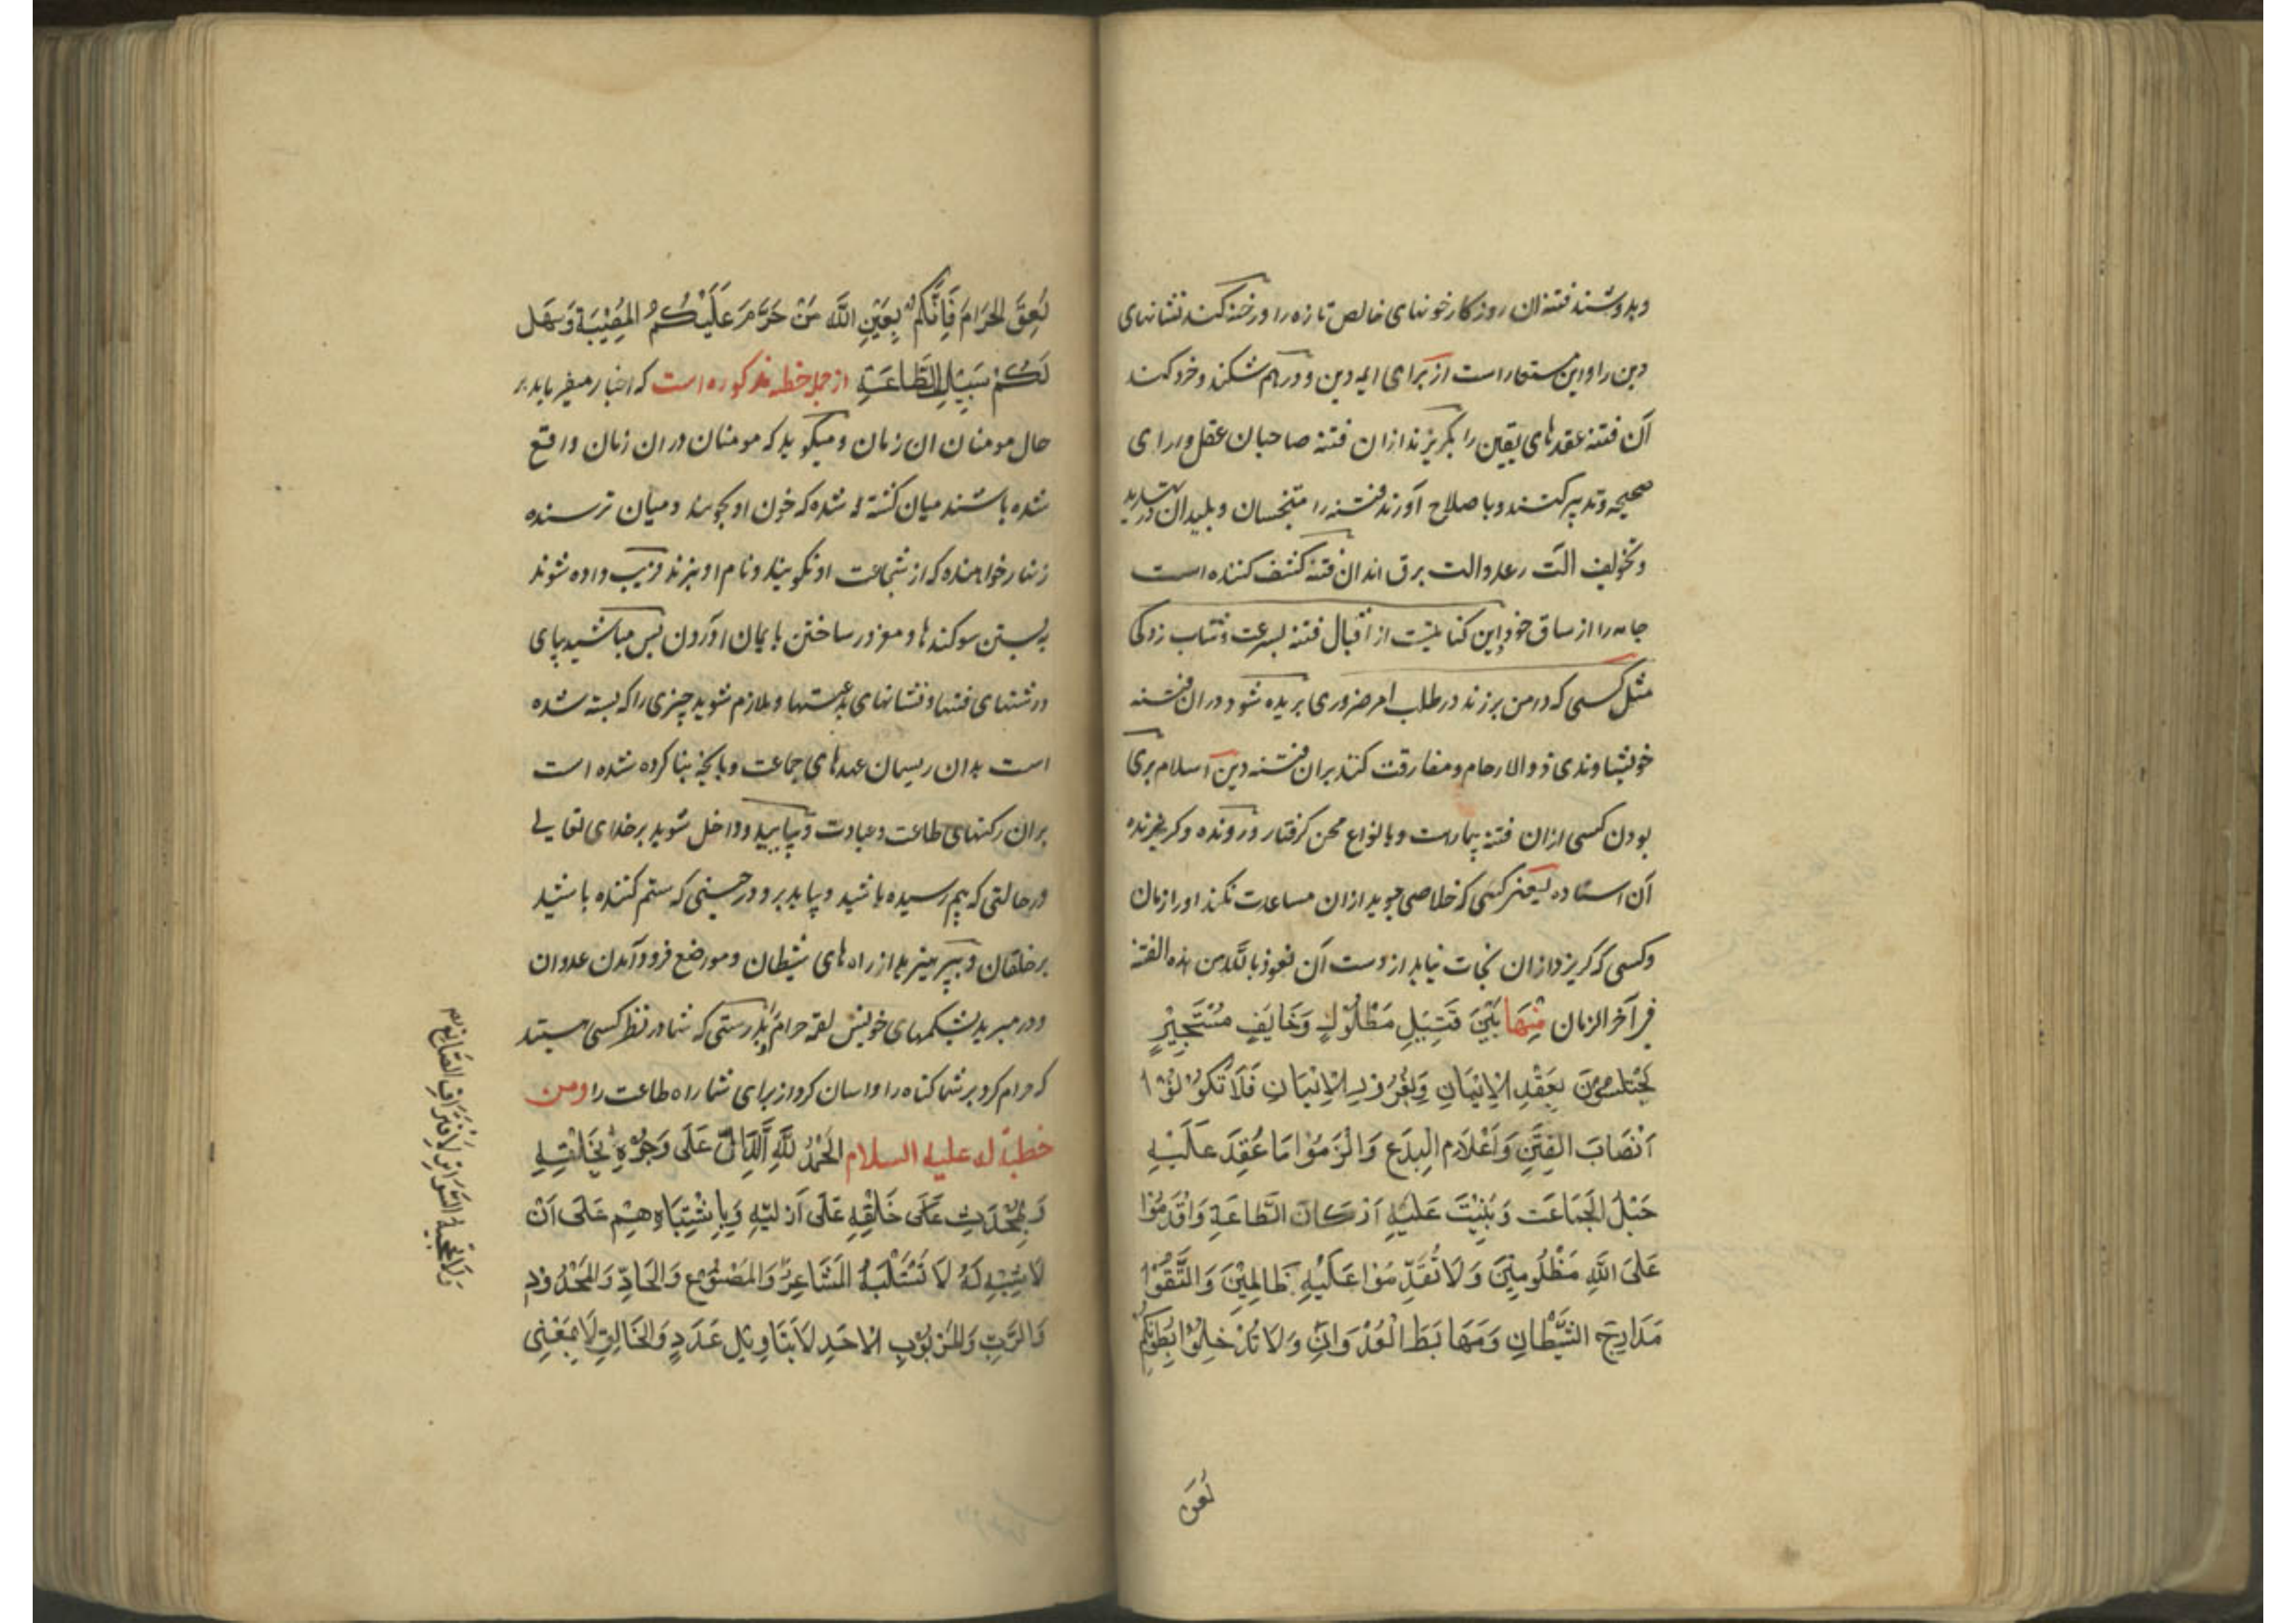 وبدوشند فتنه ان روزکار خونهای خالص تازه را ورخنه کند نشانهای
دین را واین مستعار است از برای ایمه دین و درهم شکند وخرد کند
آن فتنه عقدهای یقین را بکریزند ازان فتنه صاحبان عقل ورای
صحیحه وتدبیر کنند وبا صلاح آورند فتنه را متنجسان و پلیدان
وتخویف الت رعد والت برق اند ان فتنه کشف کننده است
جامه را از ساق خود این کنایتست از اقبال فتنه بسرعت وشتاب زدکی
مثل کسی که دامن برزند در طلب امر ضروری بریده شود دران فتنه
خویشاوندی ذوالارحام ومفارقت کنند بران فتنه دین اسلام بری
بودن کسی ازان فتنه بیمارست وبا نواع محن کرفتار ورونده وکریزنده
آن استاده یعنی کسی که خلاصی جوید ازان مساعدت نکند اورا زمان
وکسی که کریزد ازان نجات نیابد از دست آن نعوذ بالله من هذه الفتنه
فی آخر الزمان مِنْهَا بَيْنَ قَتِيلٍ مَطْلُولٍ وَخَائِفٍ مُسْتَجِيْرٍ
يَخْتِلُونَ بِعَقْدِ الْاِيْمَانِ وَبِغُرُورِ الْاِيْمَانِ فَلَا تَكُوْنُوْا
اَنْصَابَ الفِتَنِ وَاَعْلَامَ الْبِدَعِ وَالْزَمُوْا مَا عُقِدَ عَلَيْهِ
حَبْلُ الْجَمَاعَت وَبُنِيْتَ عَلَيْهِ اَرْكَانُ الطَّاعَةِ وَاقْدَمُوْا
عَلَى اللهِ مَظْلُومِيْنَ وَلَا تُقَدِّمُوْا عَلَيْهِ ظَالِمِيْنَ وَاتَّقُوْا
مَدَارِجَ الشَّيْطَانِ وَمَهَابَطَ الْعُدْوَانِ وَلَا تُدْخِلُوْا بُطُونَكُمْ
لُعَقَ
لُعَقَ الْحَرَامَ فَاِنَّكُمْ بِعَيْنِ اللهِ مَنْ حَرَّمَ عَلَيْكُمُ الْمَعْصِيَةَ وَسَهَّلَ
لَكُمْ سَبِيْلَ الطَّاعَةِ از جمله خطبه مذکوره است که اخبار میفرماید بر
حال مومنان ان زمان ومیکوید که مومنان دران زمان واقع
شده باشند میان کشته شده که خون او بجویند ومیان ترسنده
زنهار خواهنده که از شجاعت او نکویند ونام او نبرند فریب داده شوند
به بستن سوکندها ومغرور ساختن بایمان آوردن پس مباشید بپای
داشتهای فتنها ونشانهای بدعتها وملازم شوید چیزی را که بسته شده
است بدان ریسمان عهدهای جماعت وبانچه بنا کرده شده است
بران رکنهای طاعت وعبادت وبیایید وداخل شوید بر خدای تعالی
در حالتی که ستم رسیده باشید ومیایید برو در حینی که ستم کننده باشید
بر خلقان وبپرهیزید از راه های شیطان ومواضع فرود آمدن عدوان
ودر مبرید بشکمهای خویش لقمه حرام بدرستی که شما در نظر کسی هستید
که حرام کرد بر شما کناه را واسان کرد از برای شما راه طاعت را ومن
خطبة له علیه السلام الْحَمْدُ لِلَّهِ الدَّالِّ عَلَى وُجُوْدِهِ بِخَلْقِهِ
وَبِمُحْدَثِ خَلْقِهِ عَلَى اَزَلِيَّتِهِ وَبِاِشْتِبَاهِهِمْ عَلَى اَنْ
لَا شَبِيْهَ لَهُ لَا تَسْتَلِمُهُ الْمَشَاعِرُ وَالْمَصْنُوْعِ وَالْحَادِّ وَالْمَحْدُودِ
وَالرَّبِّ وَالْمَرْبُوْبِ الْاَحَدِ لَا بِتَاوِيْلِ عَدَدٍ وَالْخَالِقِ لَا بِمَعْنِى
وَلَا تَحْجُبُهُ السَّوَاتِرُ لِاِفْتِرَاقِ الصَّانِعِ